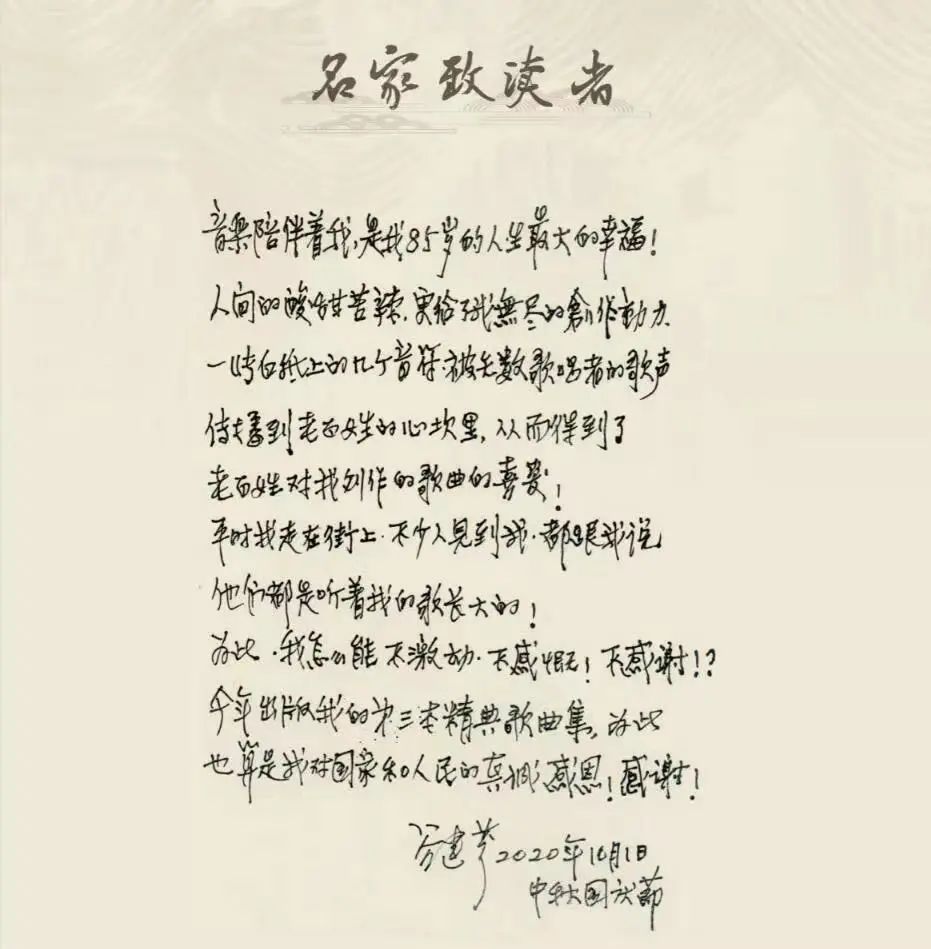 名家致读者
音乐陪伴着我,是我85岁的人生最大的幸福!
人间的酸甜苦辣,更给了我無尽的創作動力
一张白纸上的几个音符.被无数歌唱者的歌声
传播到老百姓的心坎里,从而得到了
老百姓对我创作的歌曲的喜爱!
平时我走在街上.不少人見到我.都跟我说
他们都是听着我的歌长大的!
为此.我怎么能不激动.不感慨!不感谢!?
今年出版我的第三本精典歌曲集,为此
也算是我对国家和人民的真诚感恩!感谢!
谷建芬2020年10月1日
中秋国庆節